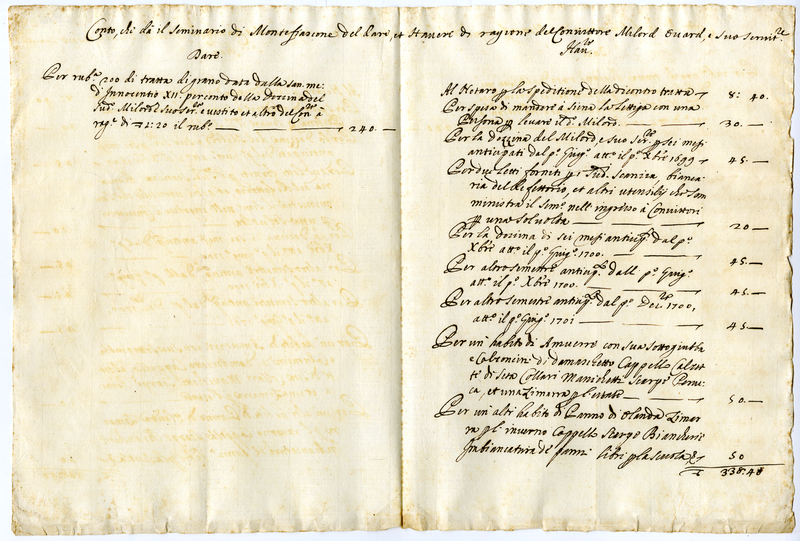 Conto, che dà il Seminario di Montefiascone del Dare, et Havere di ragione del Convittore Milord Evard, e suo Servit.re
Dare.
Per rub.a 200 di tratta di grano data dalla san. me.
di Innocentio XII. per conto della dozina del
Sud.o Milord e suo Ser.re e vestito et altro del Con.re a
rag.e di 1:20 il rub.o 240.
Hav.re
Al Notaro p la speditione della dicontro tratta 8: 40.
Per spesa di mandare à Siena la lettiga con una
Persona p levare il d.o Milord. 30.
Per la dozzina del Milord, e suo Ser.re p sei mesi
anticipati dal p.o Giug.o att.o il p.o Xbre 1699 45.
Per due letti forniti p i Sud.i Scanzia, bianca-
ria del Refettorio, et altri utensilij che som
ministra il Sem.o nell'ingresso à Convittori
p una sol volta 20
Per la dozina di sei mesi anticip. dal p.o
Xbre att.o il p.o Giug.o 1700. 45.
Per altro semestre anticip. dall p.o Giug.o
att.o il p.o Xbre 1700. 45.
Per altro semestre anticip. dal p.o Dec.re 1700,
att.o il p.o Giug.o 1701 45.
Per un' habito di Amuerre con sua sottogiubba
e Calzoncini di damaschetto Cappello Calzet-
te di Seta Collari Manichetti Scarpe Peruc-
ca, et una Zimarra p l'estate 50.
Per un' alt.o habito di Panno di Olanda Zimar
ra p l'inverno Cappello Scarpe Biancherie
Imbiancatura de panni libri p la scuola 50
338:40